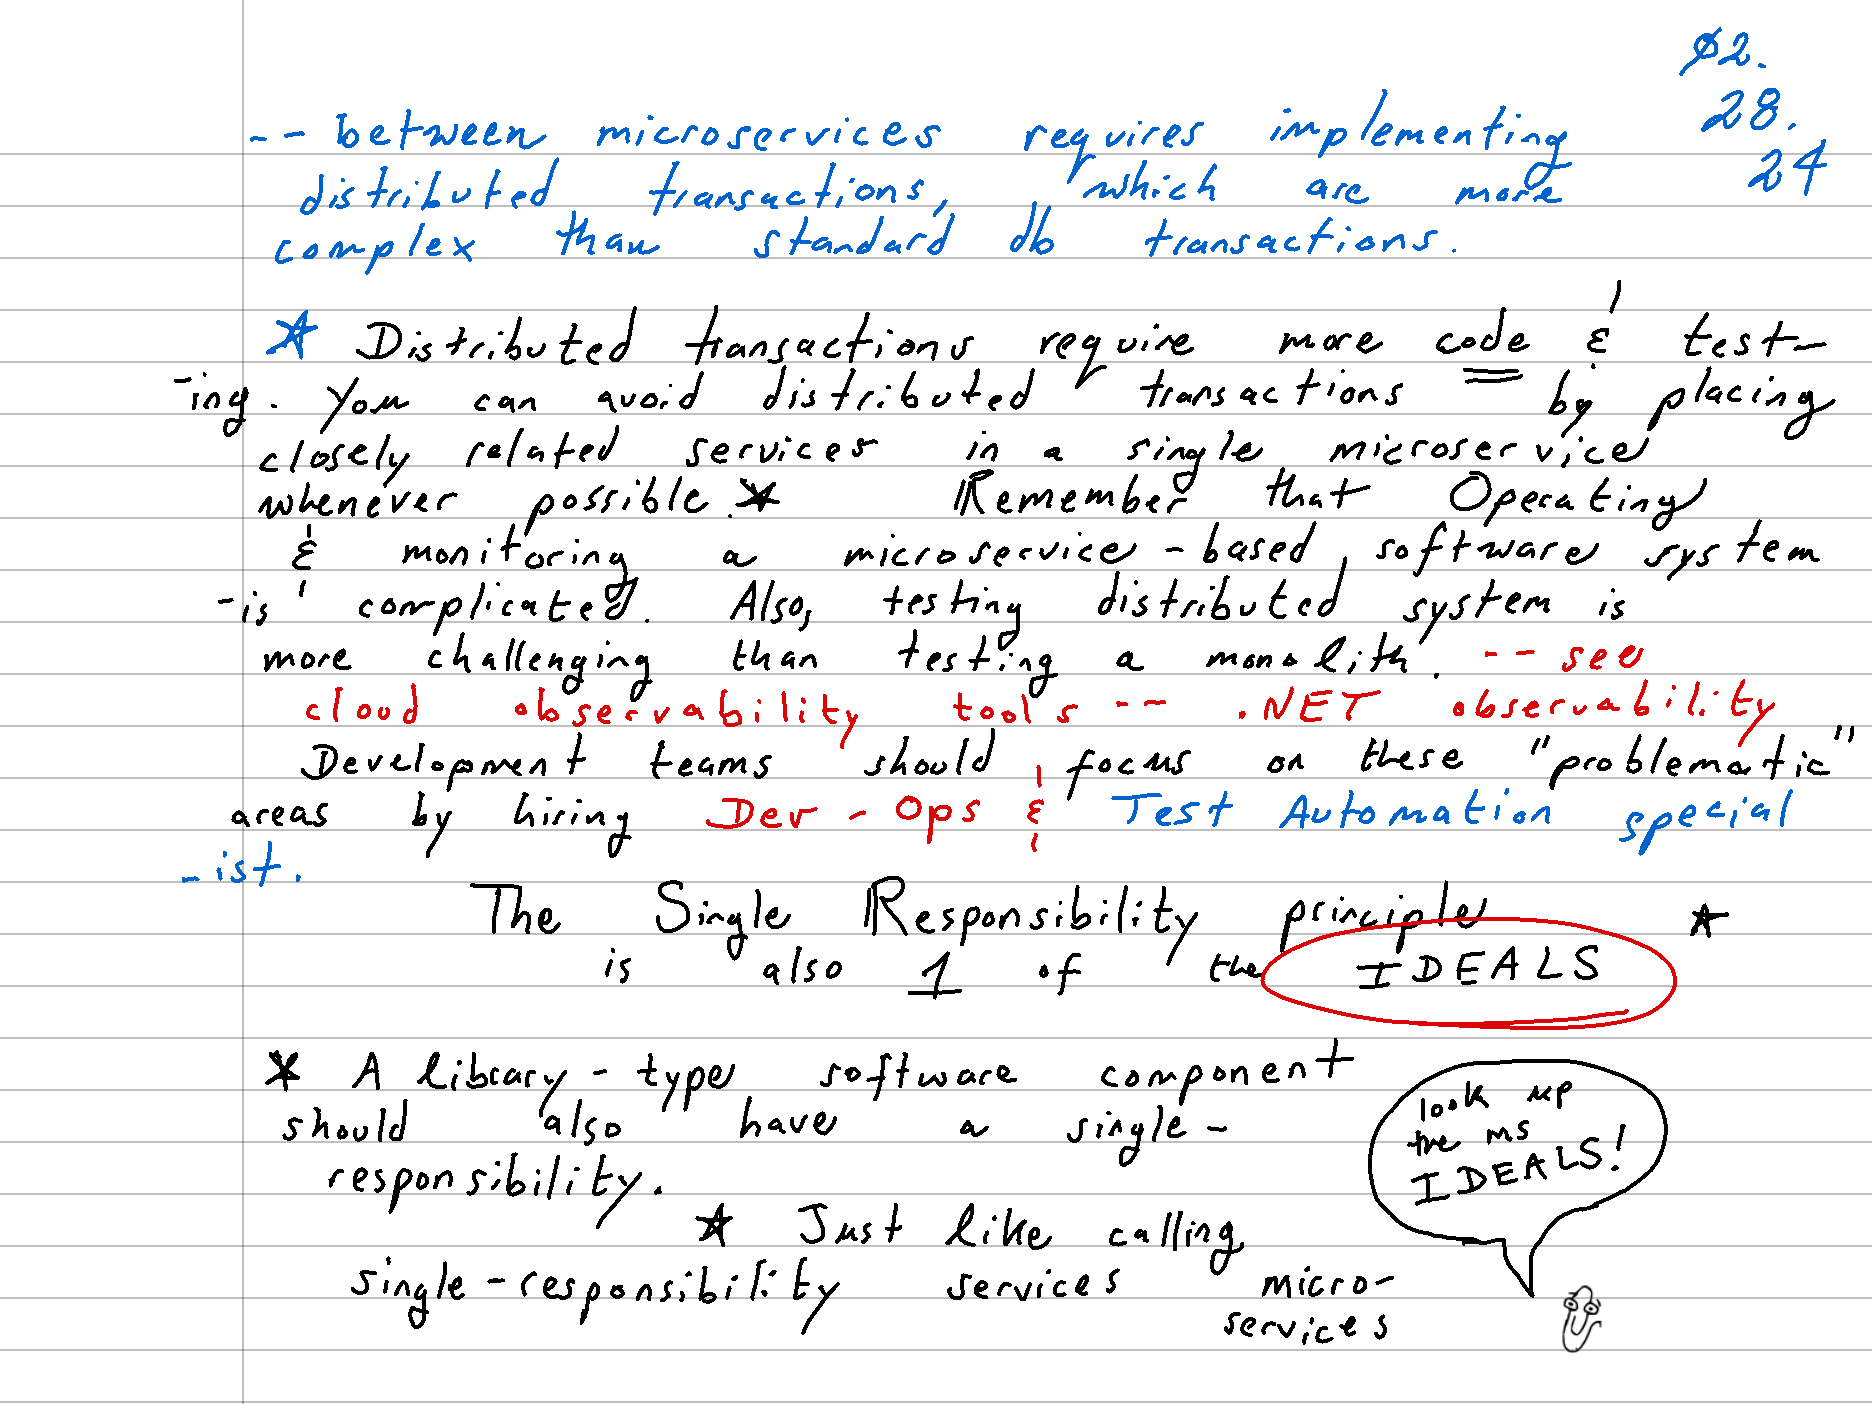 ø2.
28.
24
-- between microservices requires implementing
distributed transactions, which are more
complex than standard db transactions.
★ Distributed transactions require more code & test-
-ing. You can avoid distributed transactions by placing
closely related services in a single microservice
whenever possible.★ Remember that Operating
& monitoring a microservice-based software system
-is complicated. Also, testing distributed system is
more challenging than testing a monolith. -- see
cloud observability tools -- .NET observability
Development teams should focus on these "problematic"
areas by hiring Dev-Ops & Test Automation special
-ist.
The Single Responsibility principle ★
is also 1 of the IDEALS
★ A library-type software component
should also have a single-
responsibility.
look up
the ms
IDEALS!
★ Just like calling
single-responsibility services micro-
services